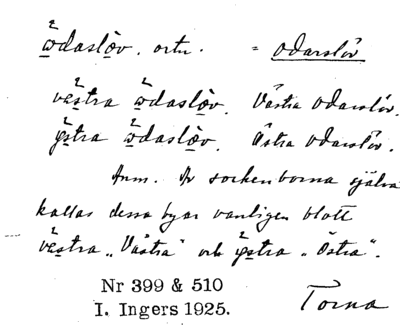 ödaslöv. ortn. = Odarslöv
västra ödaslöv. Västra Odarslöv.
östra ödaslöv. Östra Odarslöv.
Anm. Av sockenborna själva
kallas dessa byar vanligen blott
västra „Västra" och östra „Östra".
Nr 399 & 510
I. Ingers 1925. Torna